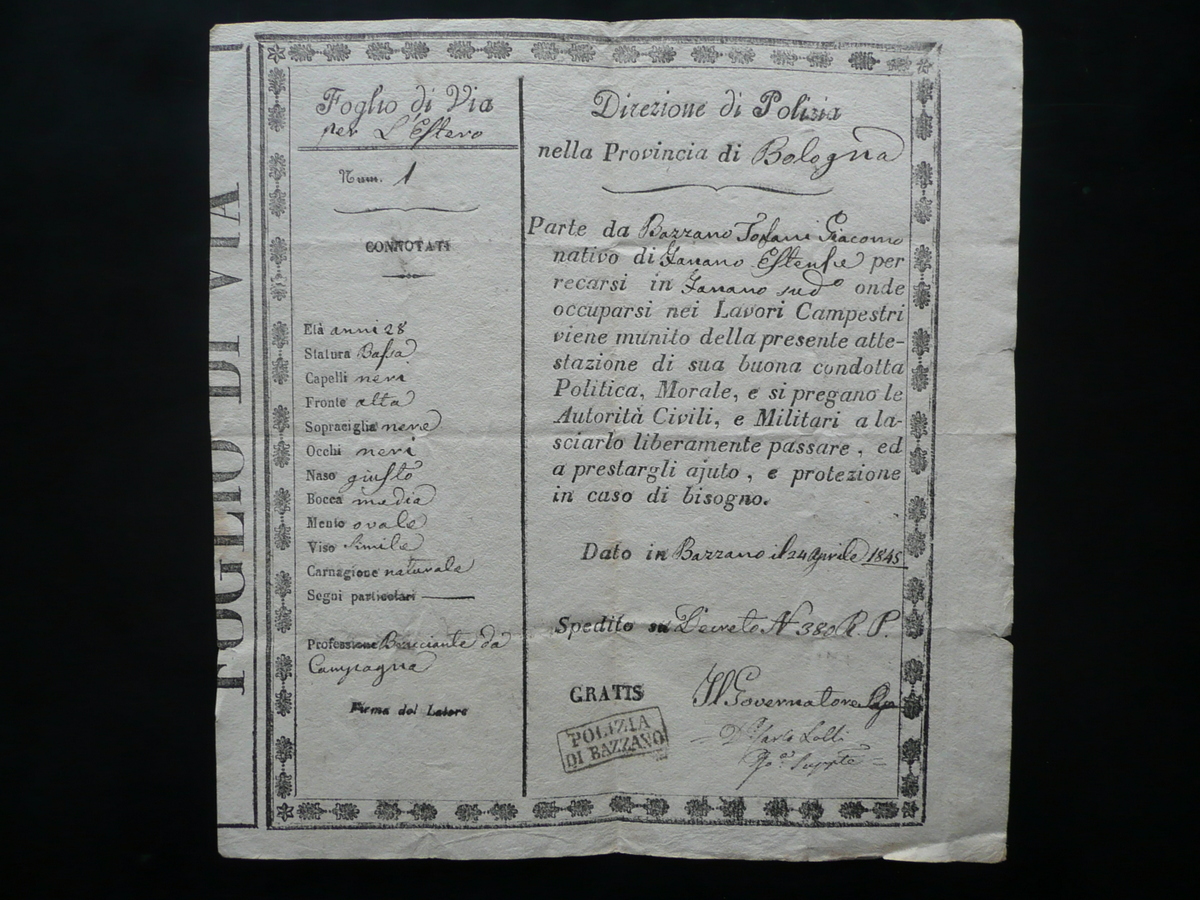 FOGLIO DI VIA
Foglio di Via
per L'Estero
Num. 1
CONNOTATI
Età anni 28
Statura Bassa
Capelli neri
Fronte alta
Sopraciglia nere
Occhi neri
Naso giusto
Bocca media
Mento ovale
Viso simile
Carnagione naturale
Segni particolari —
Professione Bracciante da
Campagna
Firma del Latore
Direzione di Polizia
nella Provincia di Bologna
Parte da Bazzano Tofani Giacomo
nativo di Fanano Estense per
recarsi in Fanano sudo onde
occuparsi nei Lavori Campestri
viene munito della presente atte-
stazione di sua buona condotta
Politica, Morale, e si pregano le
Autorità Civili, e Militari a la-
sciarlo liberamente passare, ed
a prestargli ajuto, e protezione
in caso di bisogno.
Dato in Bazzano il 24 Aprile 1845
Spedito su Decreto N 380 R. P.
GRATIS
Il Governatore
POLIZIA
DI BAZZANO
Lolli